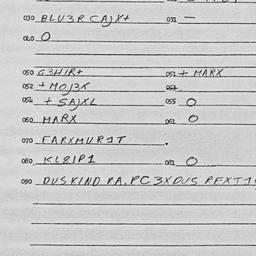 030 BLU3R CAJX+ 031 —
040 O
050 G3HIR+ 051 + MARX
052 + MOJ3X 053
054 + SAJXL 055 O
060 MARX 061 O
070 FARXMUR1T .
080 KL8IP1 081 O
090 DUSKIND RA, PC3XDUS